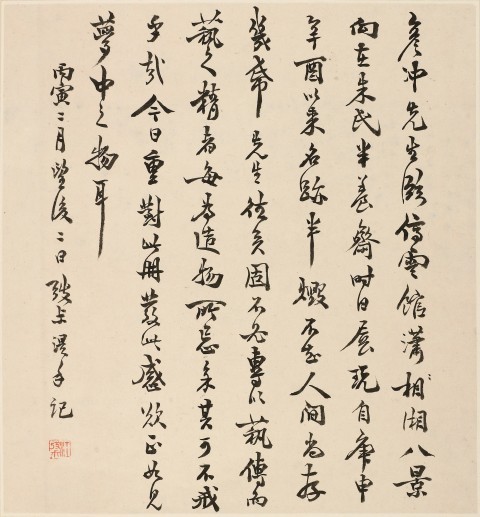 彥沖先生臨停雲館瀟相湘八景
向在朱氏半養齋時日展玩自庚申
辛酉以來名跡半燬不知人間尚存
幾希先生往矣固不必專以藝傳而
藝之精者每為造物所忌其可不戒
乎哉今日重對此冊發此感正如見
夢中之物耳
丙寅二月望後二日張記